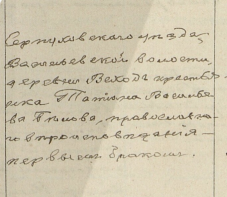 Серпуховского уѣзда,
Васильевской волости,
деревни Веходъ крестья-
нка Татіана Василье-
ва Титова, православна-
го вѣроисповѣданія —
первымъ бракомъ.